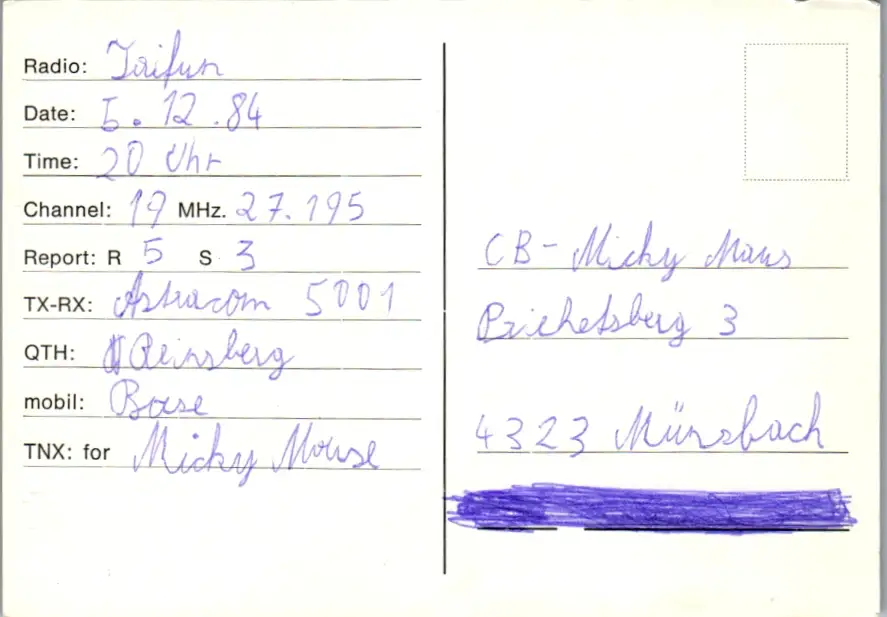 Radio: Taifun
Date: 5.12.84
Time: 20 Uhr
Channel: 19 MHz. 27.195
Report: R 5 S 3
TX-RX: Astracom 5001
QTH: Reinsberg
mobil: Base
TNX: for Micky Mouse
CB- Micky Maus
3
4323 Münzbach